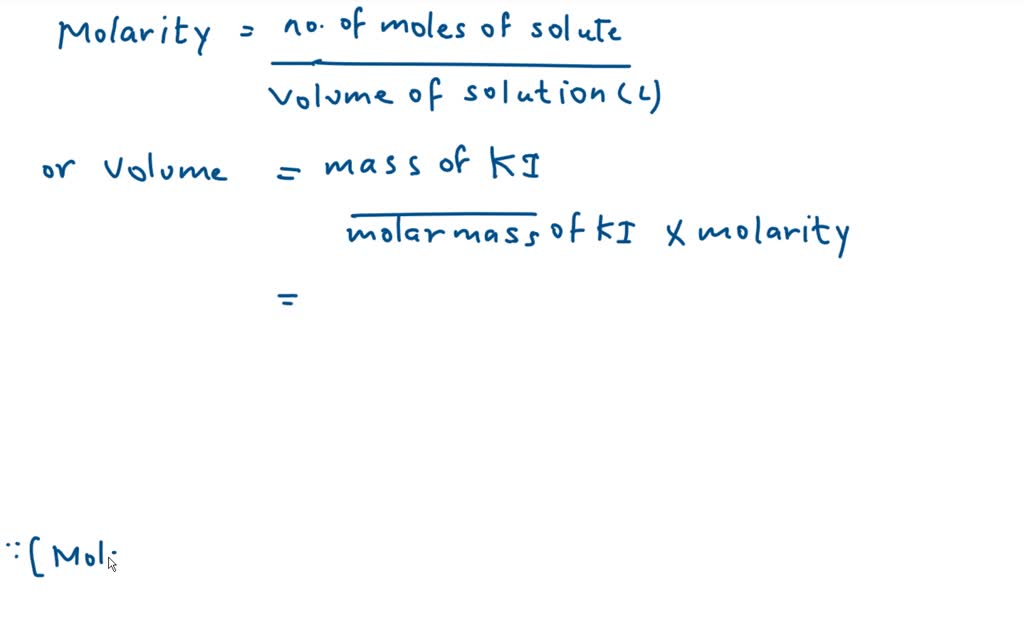 Molarity = no. of moles of solute
volume of solution (L)
or volume = mass of KI
molar mass of KI × molarity
=
∵ [ Mol